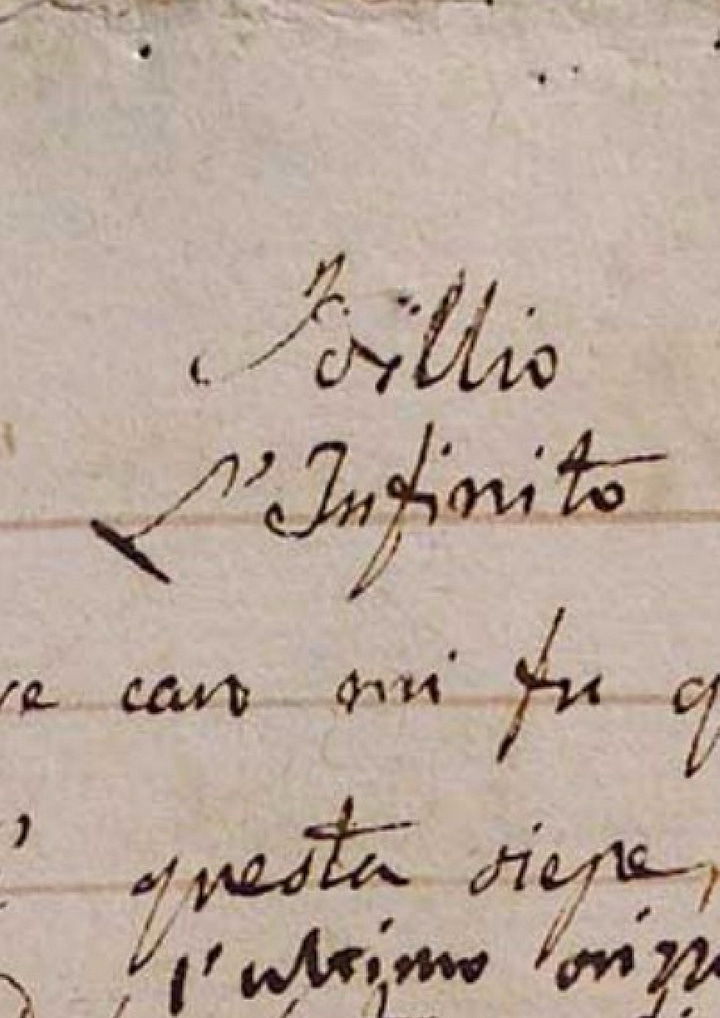 Idillio
L'Infinito
caro mi fu
questa siepe,
l'ultimo